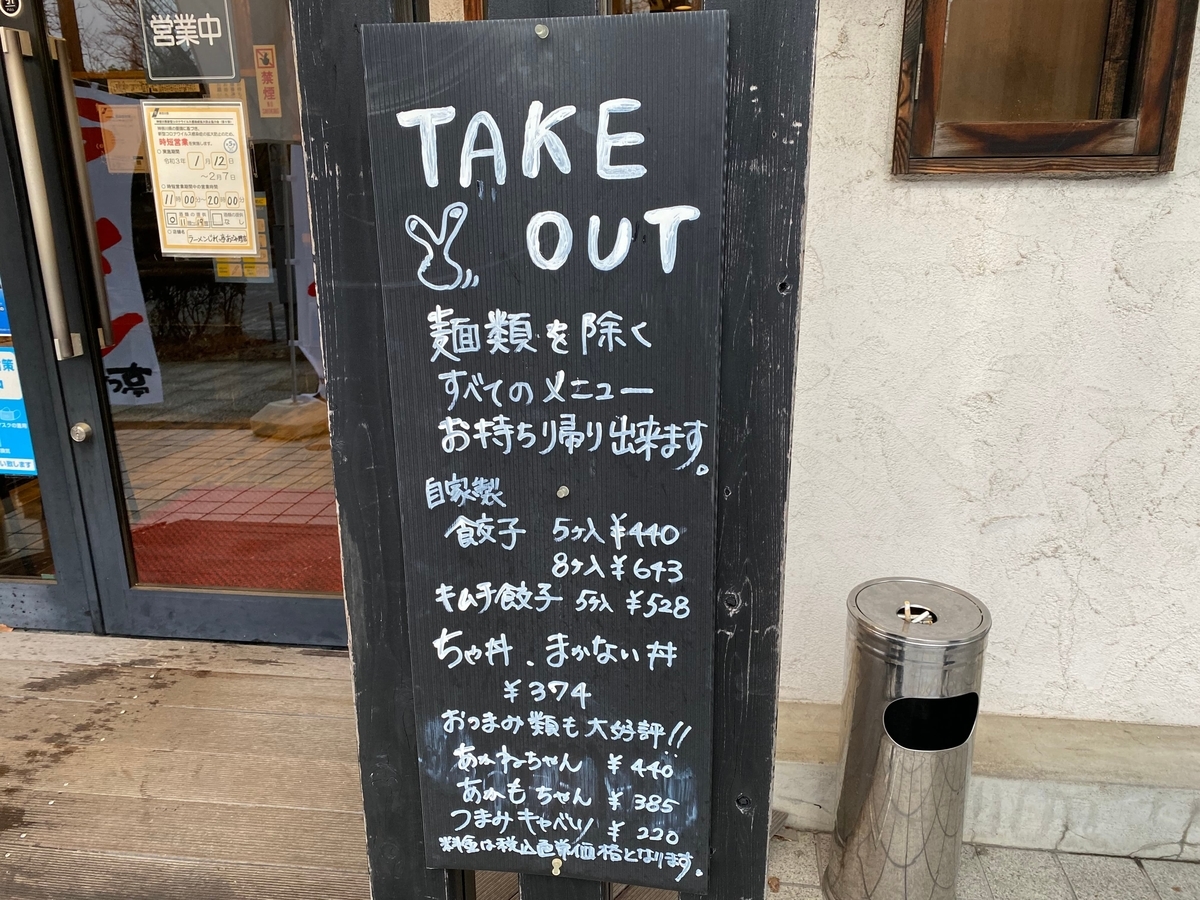 営業中
禁煙
時短営業を実施します。
令和3年 1月12日
～2月7日
11時00分～20時00分
なし
TAKE
OUT
麺類を除く
すべてのメニュー
お持ち帰り出来ます。
自家製
餃子 5ヶ入 ¥440
8ヶ入 ¥643
キムチ餃子 5ヶ入 ¥528
ちゃ丼、まかない丼
¥374
おつまみ類も大好評!!
あかねちゃん ¥440
あかもちゃん ¥385
つまみキャベツ ¥220
料金は税込通常価格となります。